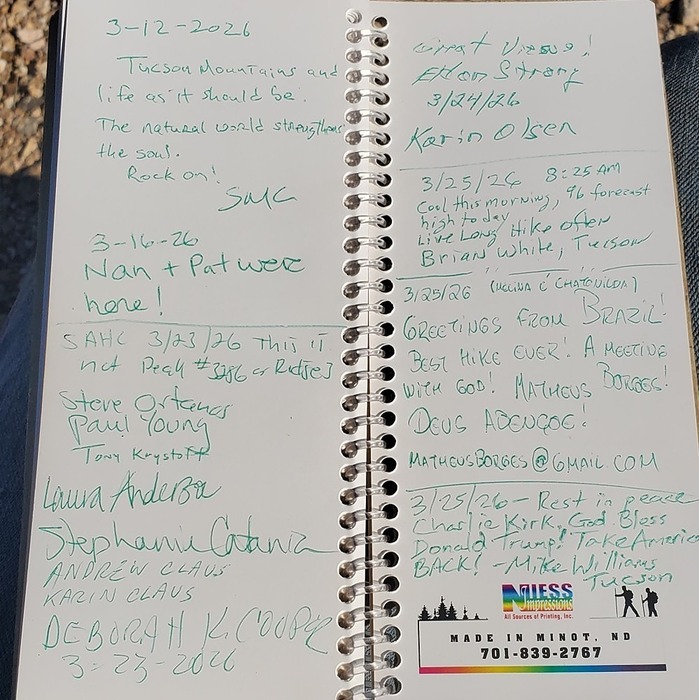 3-12-2026
Tucson Mountains and
life as it should be.
The natural world strengthens
the soul.
Rock on!
SMC
3-16-26
Nan + Pat were
here!
SAHC 3/23/26 This is
not Peak #3286 or Ridge]
Steve
Paul Young
Tony Krystoff
Laura Anderson
Stephanie Catania
ANDREW CLAUS
KARIN CLAUS
DEBORAH K. COOPER
3-23-2026
Great Views!
Strong
3/24/26
Karin Olsen
3/25/26 8:25 AM
Cool this morning, 96 forecast
high today
Live Long Hike often
Brian White, Tucson
3/25/26 (MELINA E
GREETINGS FROM BRAZIL!
BEST HIKE EVER! A MEETING
WITH GOD! MATHEUS BORGES!
DEUS ABENÇOE!
MATHEUSBORGES@GMAIL.COM
3/25/26- Rest in peace
Charlie Kirk, God Bless
Donald Trump! Take America
BACK! -Mike Williams
Tucson
NIESS
Impressions
All Sources of Printing, Inc.
MADE IN MINOT, ND
701-839-2767